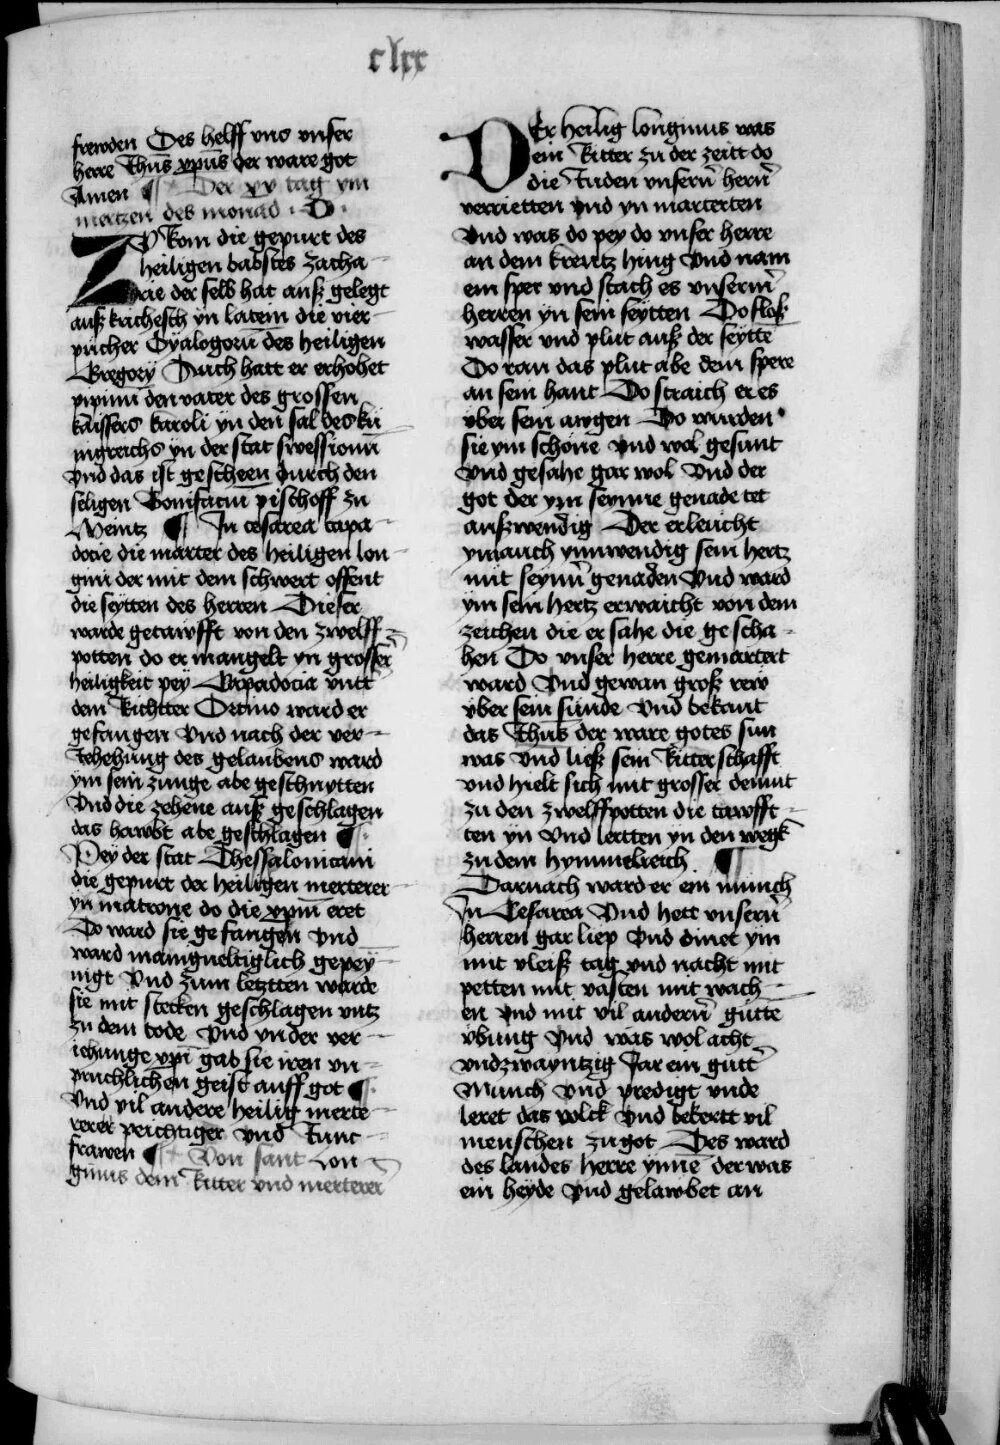 clxx
frewden Des helff vns vnser
herre Jhus xpus der ware got
Amen ¶ Der xv tag ym
mertzen des monad · D ·
ZV Rom die gepurt des
heiligen babstes Zacha-
rie der selb hat auß gelegt
auß krichesch yn latein die vier
pücher Dyalogorū des heiligen
Gregory Auch hatt er erhohet
pipinū den vater des grossen
kaissers karoli yn den sal des kü
nigreichs yn der stat swessionū
vnd das ist gescheen durch den
seligen Bonifaciū pischoff zu
Meintz ¶ In cesarea capa-
docie die marter des heiligen lon-
gini der mit dem schwert offent
die seytten des herren Dieser
warde getawfft von den zwelff
potten do er mangelt yn grosser
heiligkeit pey Capadocia vntt
dem Richtter Octino ward er
gefangen Vnd nach der ver-
Jehehung des gelaubens ward
ym sein zunge abe geschnytten
Vnd die zehene auß geschlagen
das hawbt abe geschlagen ¶
Pey der stat Thessalonicam
die gepurt der heiligen merterer-
yn matrone do die xpm̄ eret
Do ward sie gefangen Vnd
ward manigueltiglich gepey-
nigt Vnd zum letzten warde
sie mit stecken geschlagen vntz
zu dem tode Vnd vnder ver-
iehunge xpi gab sie iren vn-
pruchlichen geist auff got ¶
Vnd vil andere heilig merte-
rerer peichtiger vnd Junc-
frawen ¶ Von sant Lon
ginus dem Ritter vnd merterer
DEr heilig longinus was
ein Ritter zu der zeitt do
die Juden vnsern̄ hern̄
verrietten vnd yn marterten
Vnd was do pey do vnser herre
an dem kreutz hing Vnd nam
ein sper vnd stach es vnserm̄
herren yn sein seytten Do floß
wasser vnd plut auß der seytte
Do ran das plut abe dem spere
an sein hant Do straich er es
vber sein awgen Do wurden
sie ym schöne Vnd wol gesunt
Vnd gesahe gar wol Vnd der
got der ym seynne genade tet
außwendig Der erleucht
ym auch ynnwendig sein hertz
mit seynn̄ genaden Vnd ward
ym sein hertz erwaicht von dem
zeichen die er sahe die gescha-
hen Do vnser herre gemartert
ward Vnd gewan groß rew
vber sein sünde Vnd bekant
das Jhus der ware gotes sun
was Vnd ließ sein Ritterschafft
vnd hielt sich mit grosser demut
zu den zwelffpotten die tawfft-
ten yn Vnd lertten yn den wegk
zu dem hymmelreich ¶
Darnach ward er ein münch
In Cesarea Vnd hett vnsern̄
herren gar liep Vnd dinet ym
mit vleiß tag vnd nacht mit
petten mit vasten mit wach-
en vnd mit vil andern̄ gutte
vbung Vnd was wol acht
vndzwayntzig Jar ein gutt
Münch Vnd predigt vnde
leret das volck Vnd bekertt vil
menschen zu got Des ward
des landes herre ynnē der was
ein heyde Vnd gelawbet an